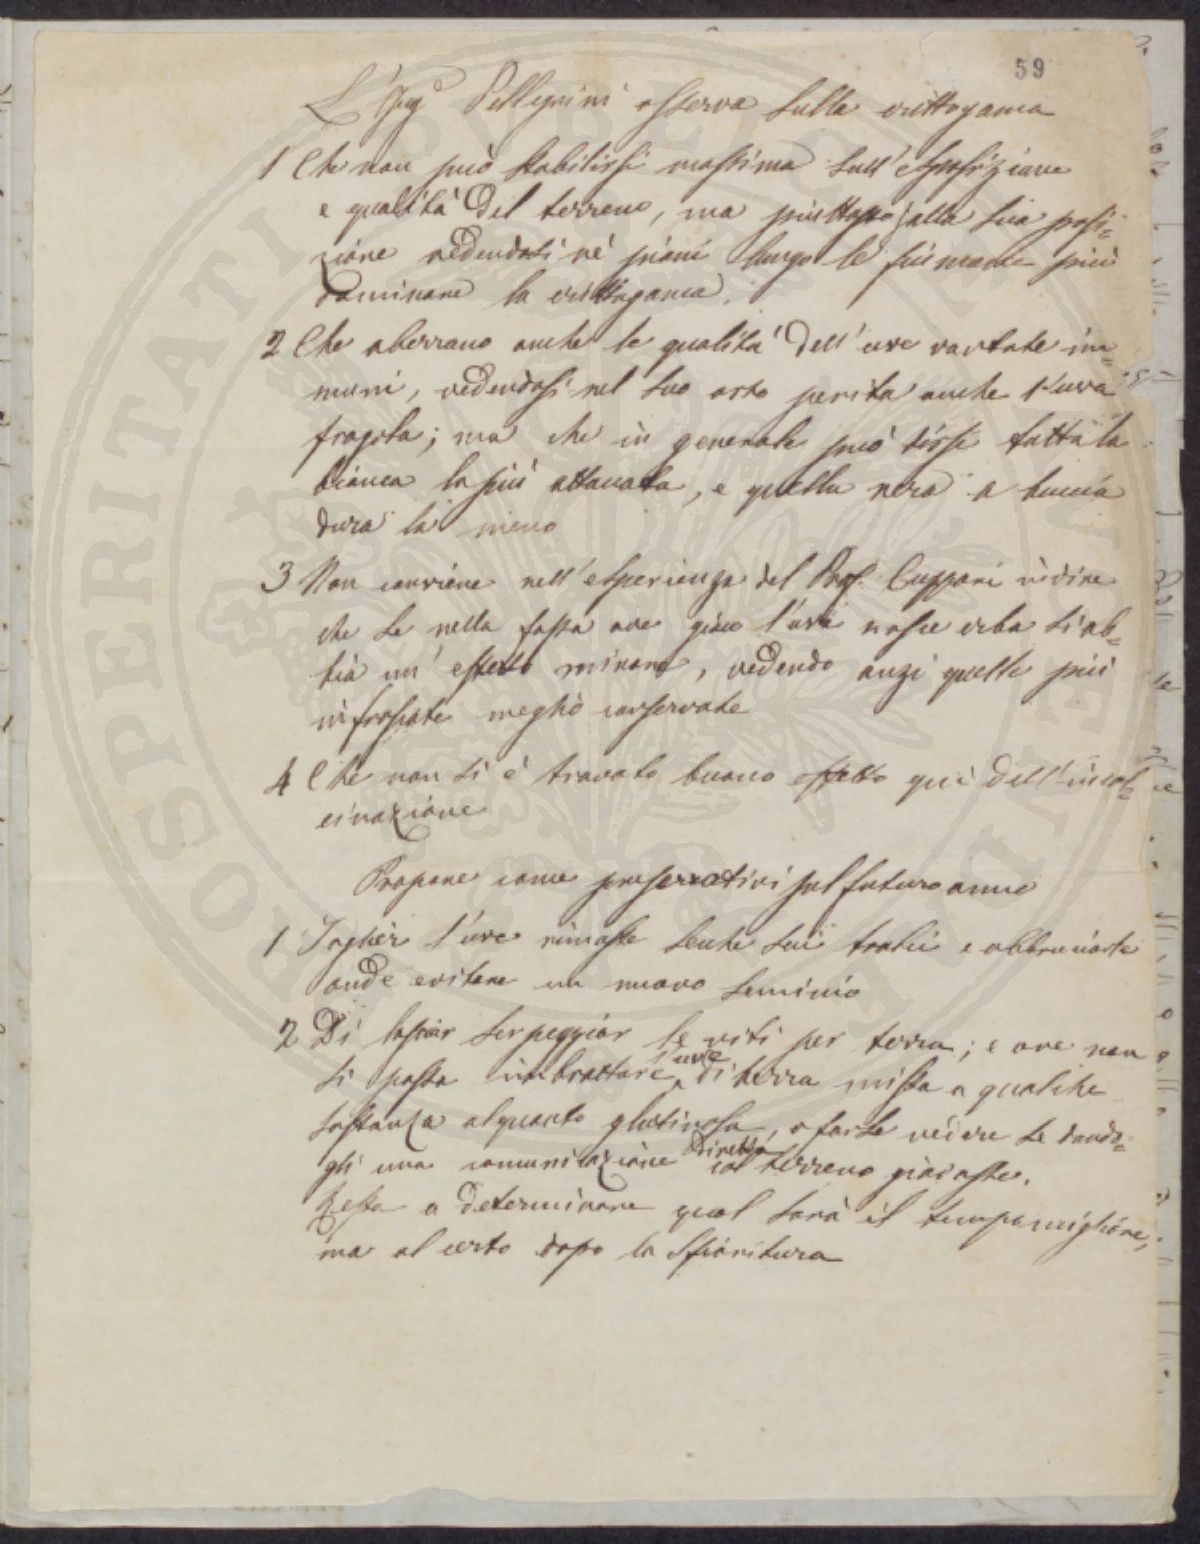 59
L'Ing.e Pellegrini osserva sulla crittogama
1 Che non può stabilirsi massima sull'esposizione
e qualità del terreno, ma piuttosto sulla sua posi=
zione vedendosi né piani lungo le fiumane più
dominare la crittogama.
2 Che aberrano anche le qualità dell'uve vantate im=
muni, vedendosi nel suo orto perita anche l'uva
fragola; ma che in generale può dirsi tutta la
bianca la più attaccata, e quella nera a buccia
dura la meno
3 Non conviene nell'esperienza del Prof. Cuppari in dire
che se nella fossa ove giace l'uva nasce erba si ab=
bia un effetto minore, vedendo anzi quelle più
infrascate meglio conservate
4 Che non si è trovato buono effetto qui dell'insol=
cinazione
Propone come preservativi pel futuro anno
1 Toglier l'uve rimaste secche sui tralci e abbruciarle
onde evitare un nuovo seminio
2 Di lasciar serpeggiar le viti per terra; e ove non
si possa imbrattare l'uve di terra mista a qualche
sostanza alquanto glutinosa, o farle vedere se dando=
gli una comunicazione diretta col terreno giovasse.
Resta a determinare qual sarà il tempo migliore,
ma al certo dopo la sfioritura
PROSPERITATI PUBLICAE